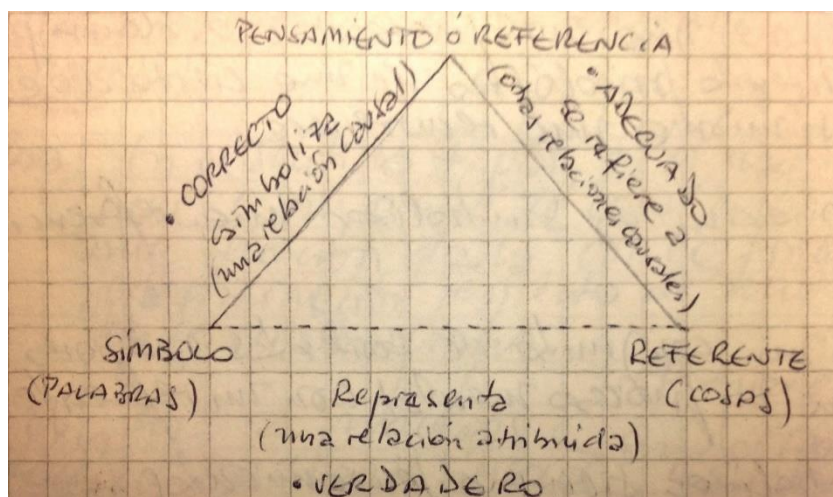 PENSAMIENTO Ó REFERENCIA
• CORRECTO
Simboliza
(una relación causal)
• ADECUADO
se refiere a
(otras relaciones causales)
SÍMBOLO
(PALABRAS)
REFERENTE
(COSAS)
Representa
(una relación atribuida)
• VERDADERO